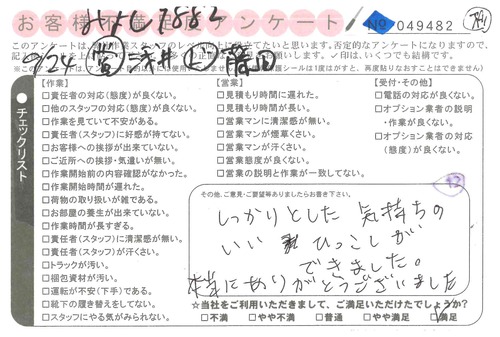 お客様不満足度アンケート
№ 049482
9/24
営 浅井
藤田
チェックリスト
【作業】
□責任者の対応(態度)が良くない。
□他のスタッフの対応(態度)が良くない。
□作業を見ていて不安がある。
□責任者(スタッフ)に好感が持てない。
□お客様への挨拶が出来ていない。
□ご近所への挨拶・気遣いが無い。
□作業開始前の内容確認がなかった。
□作業開始時間が遅れた。
□荷物の取り扱いが雑である。
□お部屋の養生が出来ていない。
□作業時間が長すぎる。
□責任者(スタッフ)に清潔感が無い。
□責任者(スタッフ)が汗くさい。
□トラックが汚い。
□梱包資材が汚い。
□運転が不安(下手)である。
□靴下の履き替えをしてない。
□スタッフにやる気がみられない。
【営業】
□見積もり時間に遅れた。
□見積もり時間が長い。
□営業マンに清潔感が無い。
□営業マンが煙草くさい。
□営業マンが汗くさい。
□営業態度が良くない。
□営業の説明と作業が一致してない。
【受付・その他】
□電話の対応が良くない。
□オプション業者の説明
・作業が良くない。
□オプション業者の対応
(態度)が良くない。
12
その他、ご意見・ご要望等ありましたらお書き下さい。
しっかりとした 気持ちの
いい ひっこしが
できました。
本当にありがとうございました
☆当社をご利用いただきまして、ご満足いただけたでしょうか?
□不満 □やや不満 □普通 □やや満足 □満足